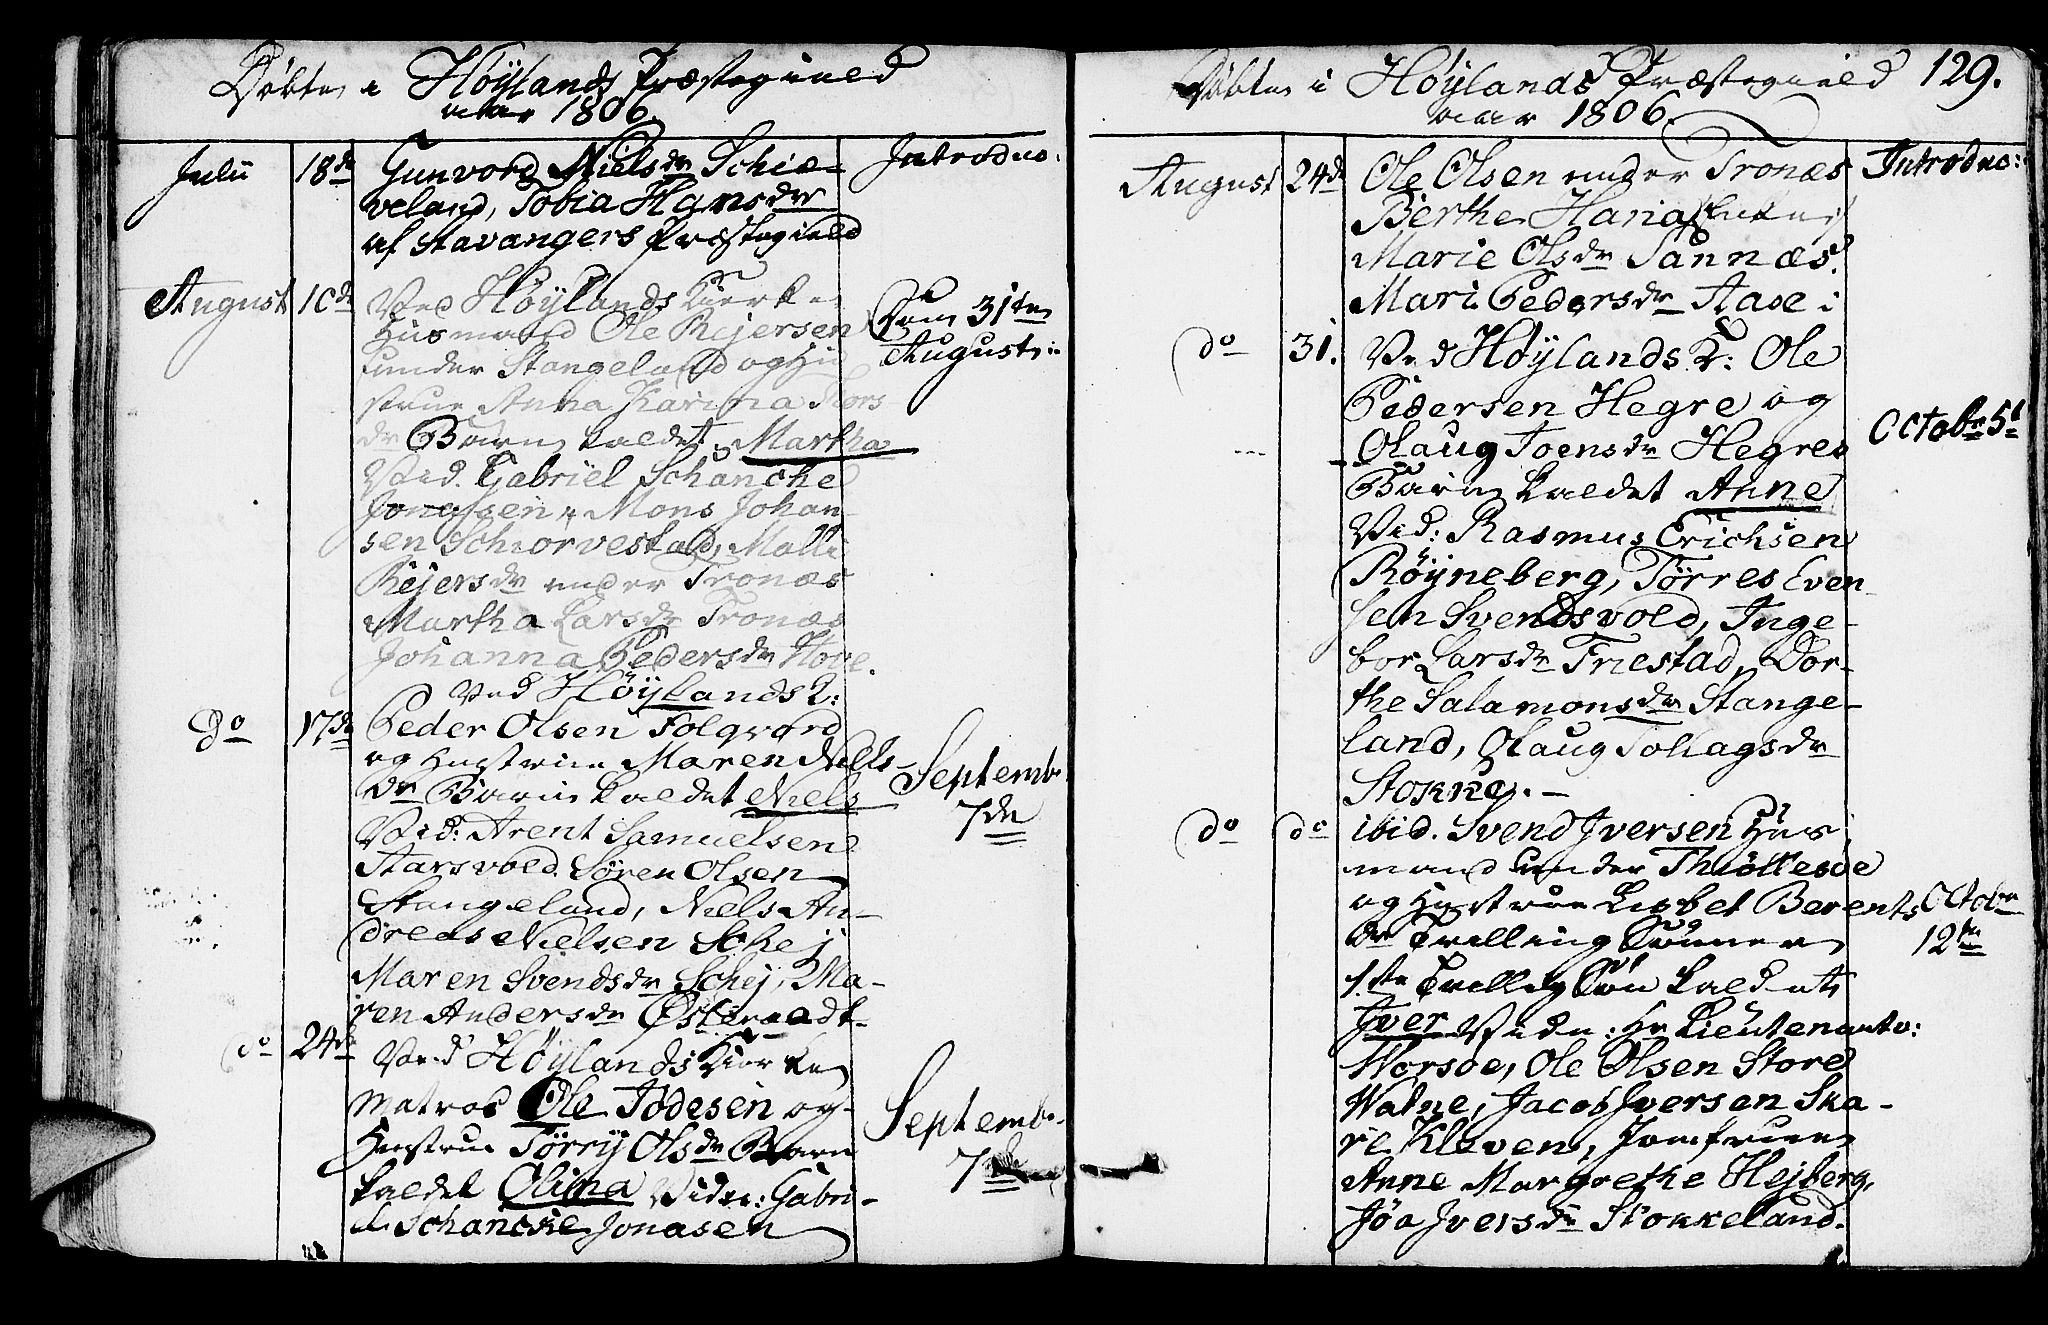 Døbte i Høylands Præstegield
aar 1806.
Julii 18de Gunvord Nielsdr Schiæ- Introduc:
veland, Tobia Hansdr
af Stavangers Præstegield
August 10de Ved Høylands Kierke
Huusmand Ole Rejersen Dom 31ten
under Stangeland og Hu- August:
strue Anna Karina Tors
dr Barn kaldet Martha
Vid. Gabriel Schancke
Jonassen, Mons Johan-
sen Schiorvestad, Malli
Rejersdr under Tronæs
Martha Larsdr Tronæs
Johanna Pedersdr Hove.
Ved Høylands K:
do 17de Peder Olsen Folqvord
og Hustrue Maren Niels- Septemb.
dr Barn kaldet Niels 7de
Vid: Arent Samuelsen
Starsvold Søren Olsen
Stangeland, Niels An-
dreas Nielsen Schej
Maren Svendsdr Schej, Ma-
ren Andersdr Østeraadt
do 24de Ved Høylands Kierke
Matros Ole Jodesen og Septemb.
Hustrue Tørry Olsdr Barn 7de
kaldet Olina Vidn: Gabri-
el Schancke Jonasen
Døbte i Høylands Præstegield 129.
aar 1806.
August 24de Ole Olsen under Tronæs Introduc:
Berthe Haria
Marie Olsdr Sannæs.
Mari Pedersdr Aase i
do 31. Ved Høylands K: Ole
Pedersen Hegre og Octobr 5t
Olaug Toensdr Hegre
Barn kaldet Anne
Vid: Rasmus Erichsen
Røyneberg, Tørres Even
sen Svendsvold, Inge-
bor Larsdr Friestad, Dor-
the Salamonsdr Stange-
land, Olaug Tollagsdr
Stokke. —
do do ibid. Svend Iversen Huus
mand under Thiøttesøe
og Hustrue Lisbet Berents Octobr
dr Tvilling Sønner 12te
1ste Tvilling Søn kaldet
Iver Vidn: Hr Lieutenant:
Worsøe, Ole Olsen Store
Watne, Jacob Iversen Ska-
re Kleven, Jomfrue
Anne Margrethe Hejberg,
Jøa Iversdr Stokkeland.